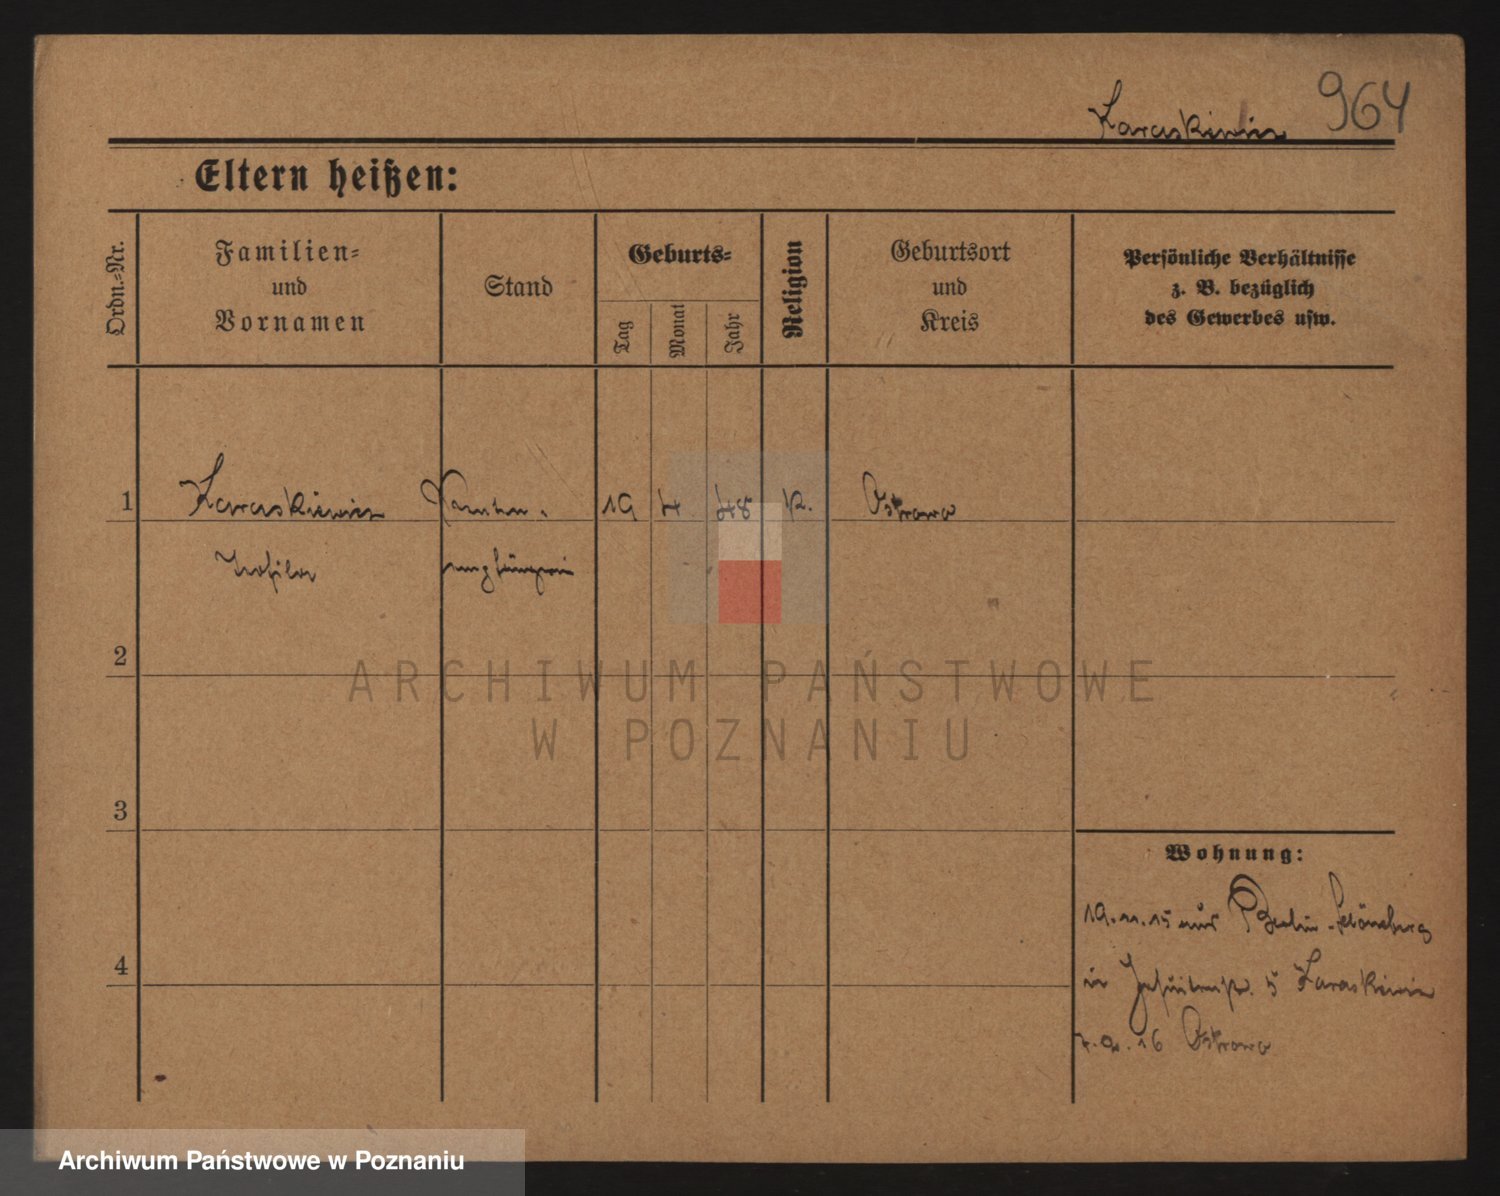 964
Karaskiewicz
Eltern heißen:
Ordn.-Nr.
Familien-
und
Vornamen
Stand
Geburts-
Tag
Monat
Jahr
Religion
Geburtsort
und
Kreis
Persönliche Verhältnisse
z. B. bezüglich
des Gewerbes usw.
1 Karaskiewicz Renten- 19 4 48 K. Ostrowo
empfängerin
2
3
4
ARCHIWUM PAŃSTWOWE
W POZNANIU
Wohnung:
19.11.15 aus Berlin-Schöneberg
in Jesuitenstr. 5 Karaskiewicz
16 Ostrowo
Archiwum Państwowe w Poznaniu